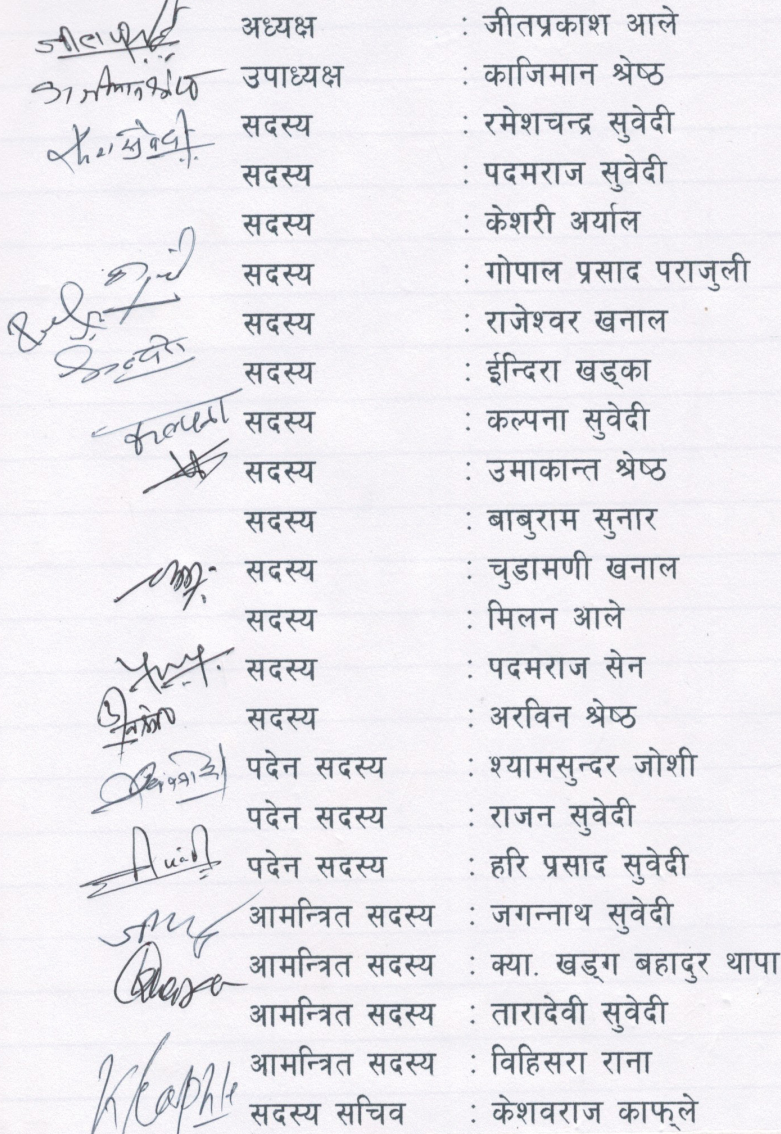 अध्यक्ष : जीतप्रकाश आले
उपाध्यक्ष : काजिमान श्रेष्ठ
सदस्य : रमेशचन्द्र सुवेदी
सदस्य : पदमराज सुवेदी
सदस्य : केशरी अर्याल
सदस्य : गोपाल प्रसाद पराजुली
सदस्य : राजेश्वर खनाल
सदस्य : ईन्दिरा खड्का
कल्पना सदस्य : कल्पना सुवेदी
सदस्य : उमाकान्त श्रेष्ठ
सदस्य : बाबुराम सुनार
सदस्य : चुडामणी खनाल
सदस्य : मिलन आले
सदस्य : पदमराज सेन
सदस्य : अरविन श्रेष्ठ
पदेन सदस्य : श्यामसुन्दर जोशी
पदेन सदस्य : राजन सुवेदी
पदेन सदस्य : हरि प्रसाद सुवेदी
आमन्त्रित सदस्य : जगन्नाथ सुवेदी
आमन्त्रित सदस्य : क्या. खड्ग बहादुर थापा
आमन्त्रित सदस्य : तारादेवी सुवेदी
आमन्त्रित सदस्य : विहिसरा राना
KKaphle सदस्य सचिव : केशवराज काफ्ले